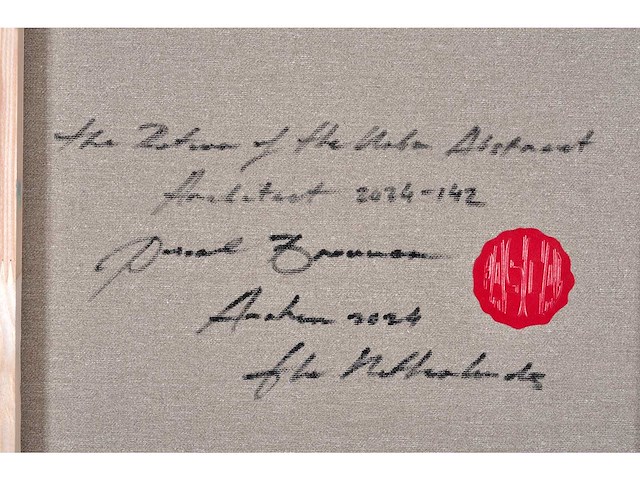 The Return of the Urban Abstract
Architect 2024-142
Arnhem 2024
The Netherlands